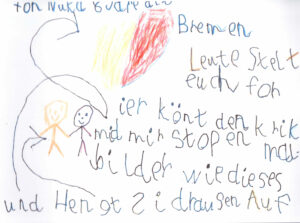 Bremen
Leute Stelt
euch for
ier könt den krik
mid mir stopen
bilder wie dieses
und Hengt S i drausen Auf